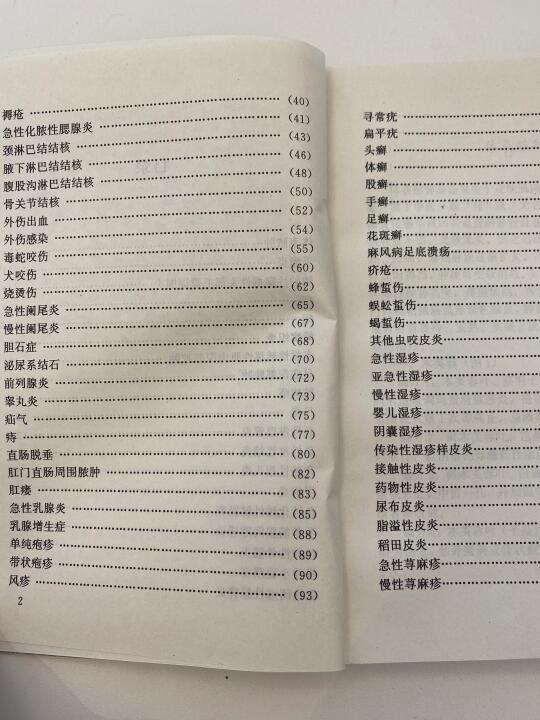 褥疮 (40)
急性化脓性腮腺炎 (41)
颈淋巴结结核 (43)
腋下淋巴结结核 (46)
腹股沟淋巴结结核 (48)
骨关节结核 (50)
外伤出血 (52)
外伤感染 (54)
毒蛇咬伤 (55)
犬咬伤 (60)
烧烫伤 (62)
急性阑尾炎 (65)
慢性阑尾炎 (67)
胆石症 (68)
泌尿系结石 (70)
前列腺炎 (72)
睾丸炎 (73)
疝气 (75)
痔 (77)
直肠脱垂 (80)
肛门直肠周围脓肿 (82)
肛瘘 (83)
急性乳腺炎 (85)
乳腺增生症 (88)
单纯疱疹 (89)
带状疱疹 (90)
风疹 (93)
2
寻常疣
扁平疣
头癣
体癣
股癣
手癣
足癣
花斑癣
麻风病足底溃疡
疥疮
蜂蜇伤
蜈蚣蜇伤
蝎蜇伤
其他虫咬皮炎
急性湿疹
亚急性湿疹
慢性湿疹
婴儿湿疹
阴囊湿疹
传染性湿疹样皮炎
接触性皮炎
药物性皮炎
尿布皮炎
脂溢性皮炎
稻田皮炎
急性荨麻疹
慢性荨麻疹